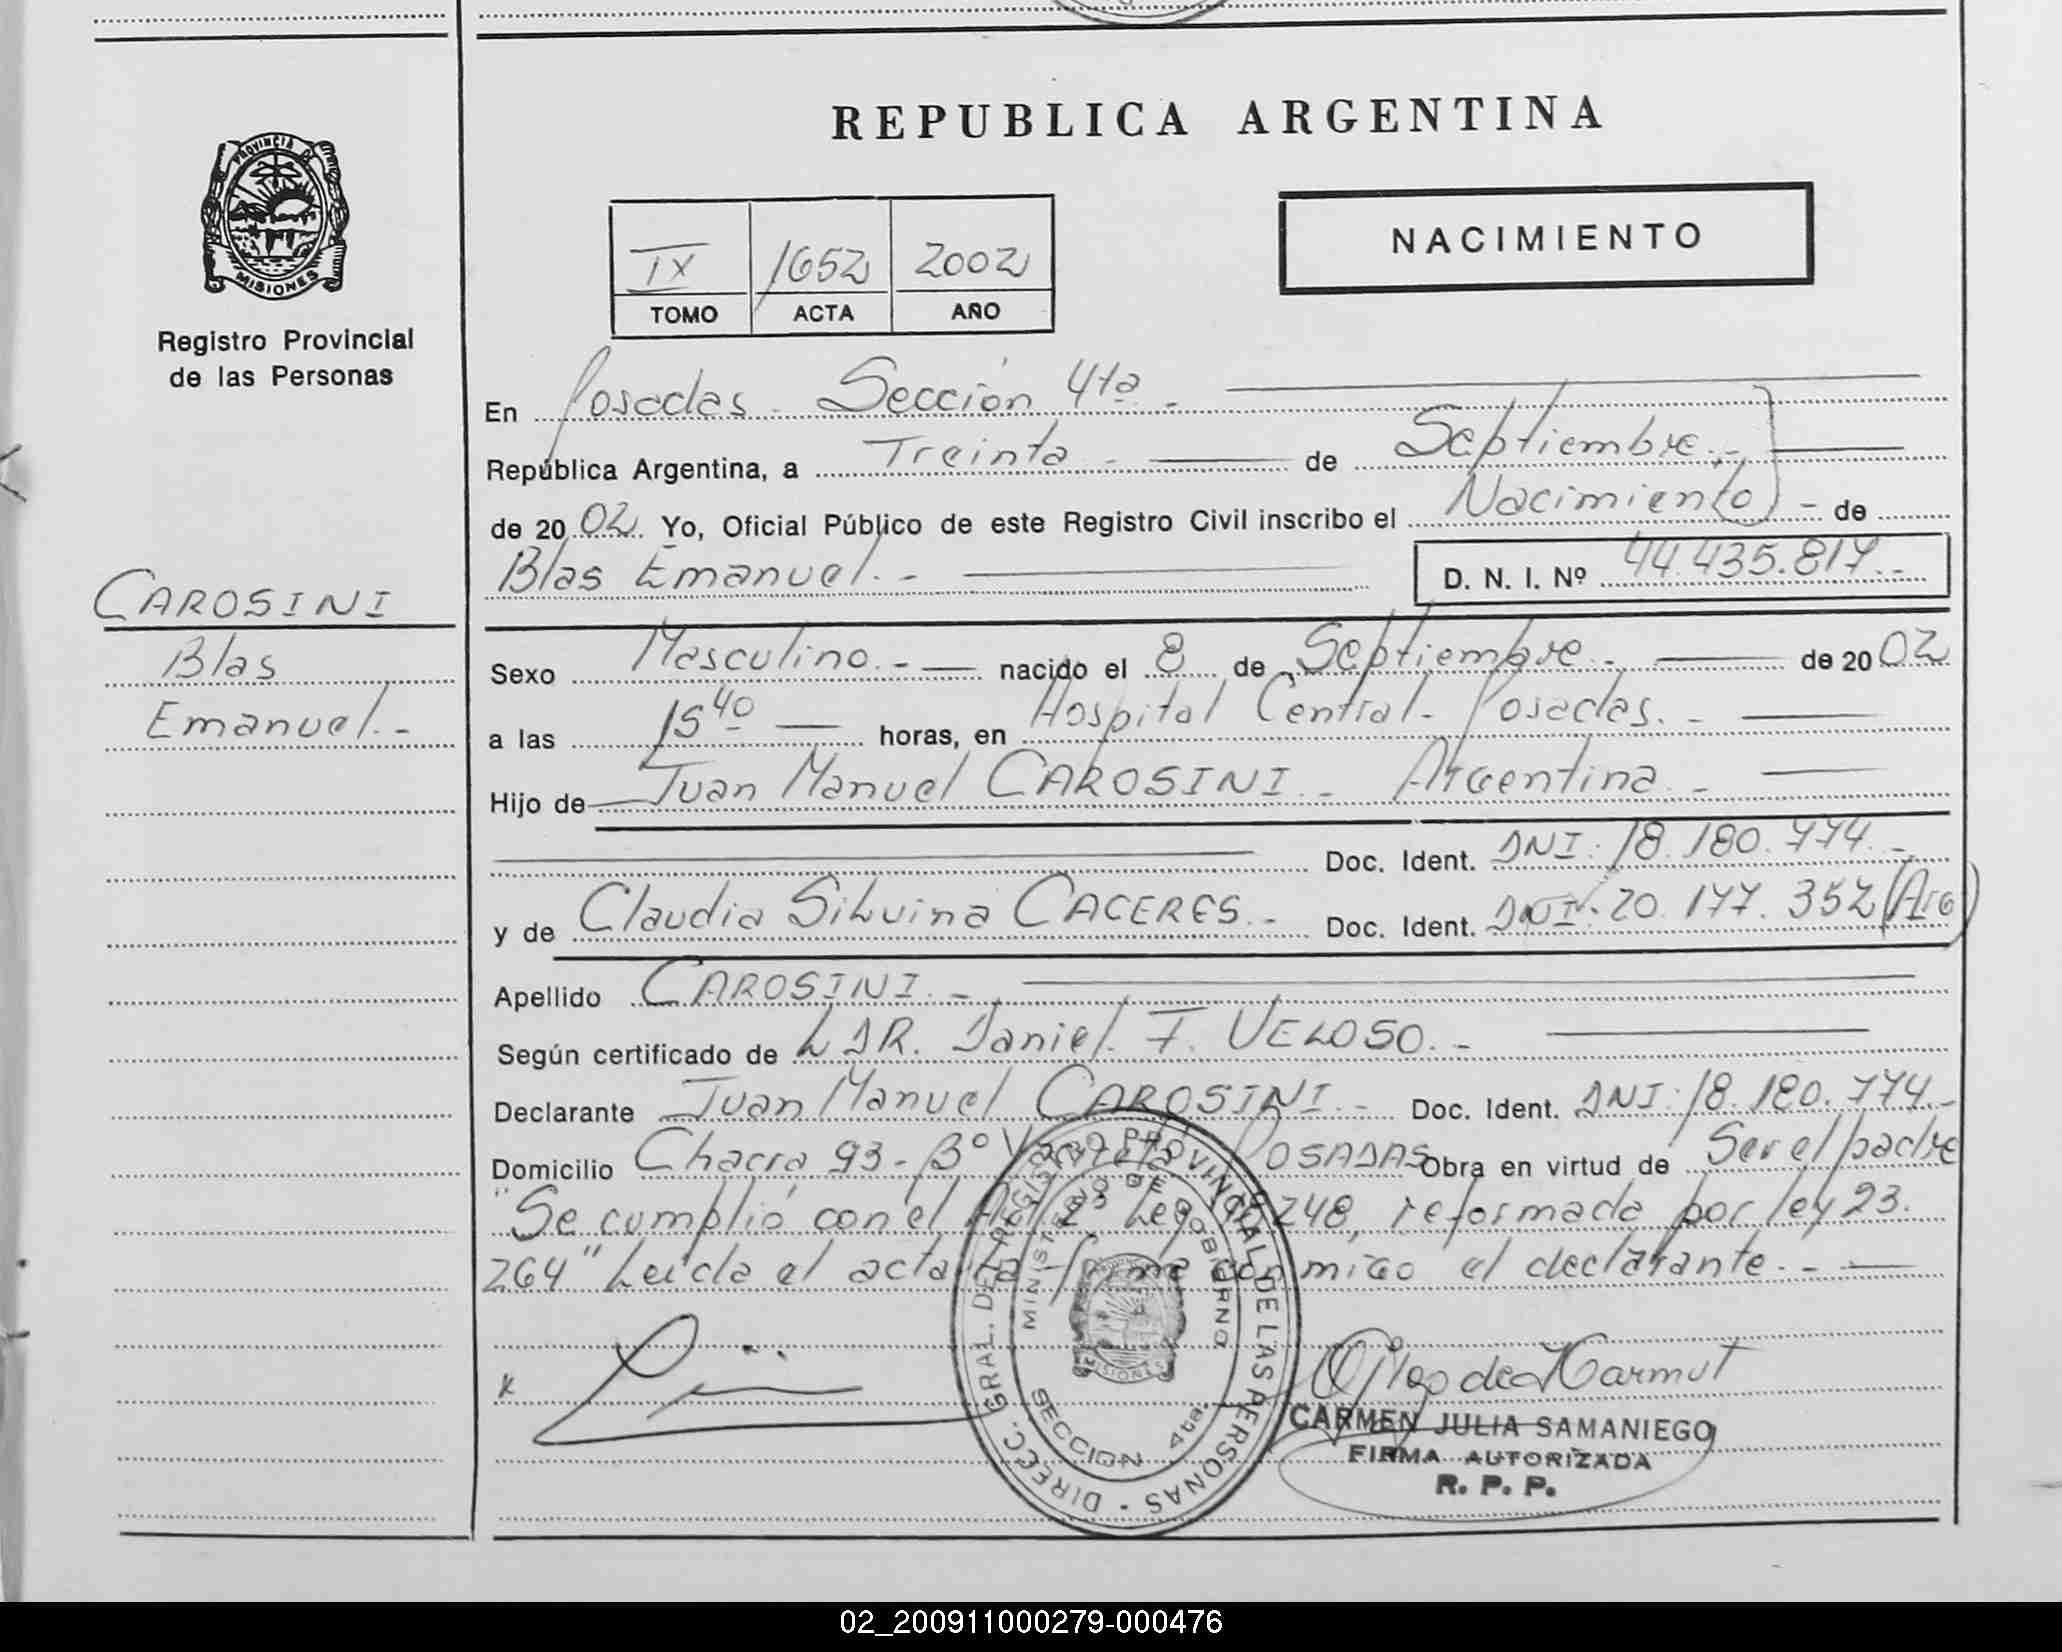 REPUBLICA ARGENTINA
PROVINCIA DE
MISIONES
Registro Provincial
de las Personas
NACIMIENTO
IX 1652 2002
TOMO ACTA AÑO
CAROSINI
Blas
Emanuel.-
En Posadas - Sección 4ta -
República Argentina, a Treinta - de Septiembre.-
de 2002. Yo, Oficial Público de este Registro Civil inscribo el Nacimiento - de
Blas Emanuel.- D. N. I. Nº 44.435.817.-
Sexo Masculino.- nacido el 8 de Septiembre.- de 2002
a las 15 40 horas, en Hospital Central - Posadas.-
Hijo de Juan Manuel CAROSINI.- Argentina.-
Doc. Ident. DNI: 18.180.774.-
y de Claudia Silvina CACERES.- Doc. Ident. DNI: 20.177.352 (Arg)
Apellido CAROSINI.-
Según certificado de DR. Daniel F. VELOSO.-
Declarante Juan Manuel CAROSINI.- Doc. Ident. DNI: 18.180.774.-
Domicilio Chacra 93 - Bº Yacyreta POSADAS Obra en virtud de Ser el padre
"Se cumplió con el Art. 2º Ley 18.248, reformada por ley 23.
264" Leída el acta la firma conmigo el declarante.-
DIRECC. GRAL. DEL REGISTRO PROVINCIAL DE LAS PERSONAS
MINISTERIO DE GOBIERNO
MISIONES
SECCION 4ta.
CARMEN JULIA SAMANIEGO
FIRMA AUTORIZADA
R. P. P.
02_200911000279-000476